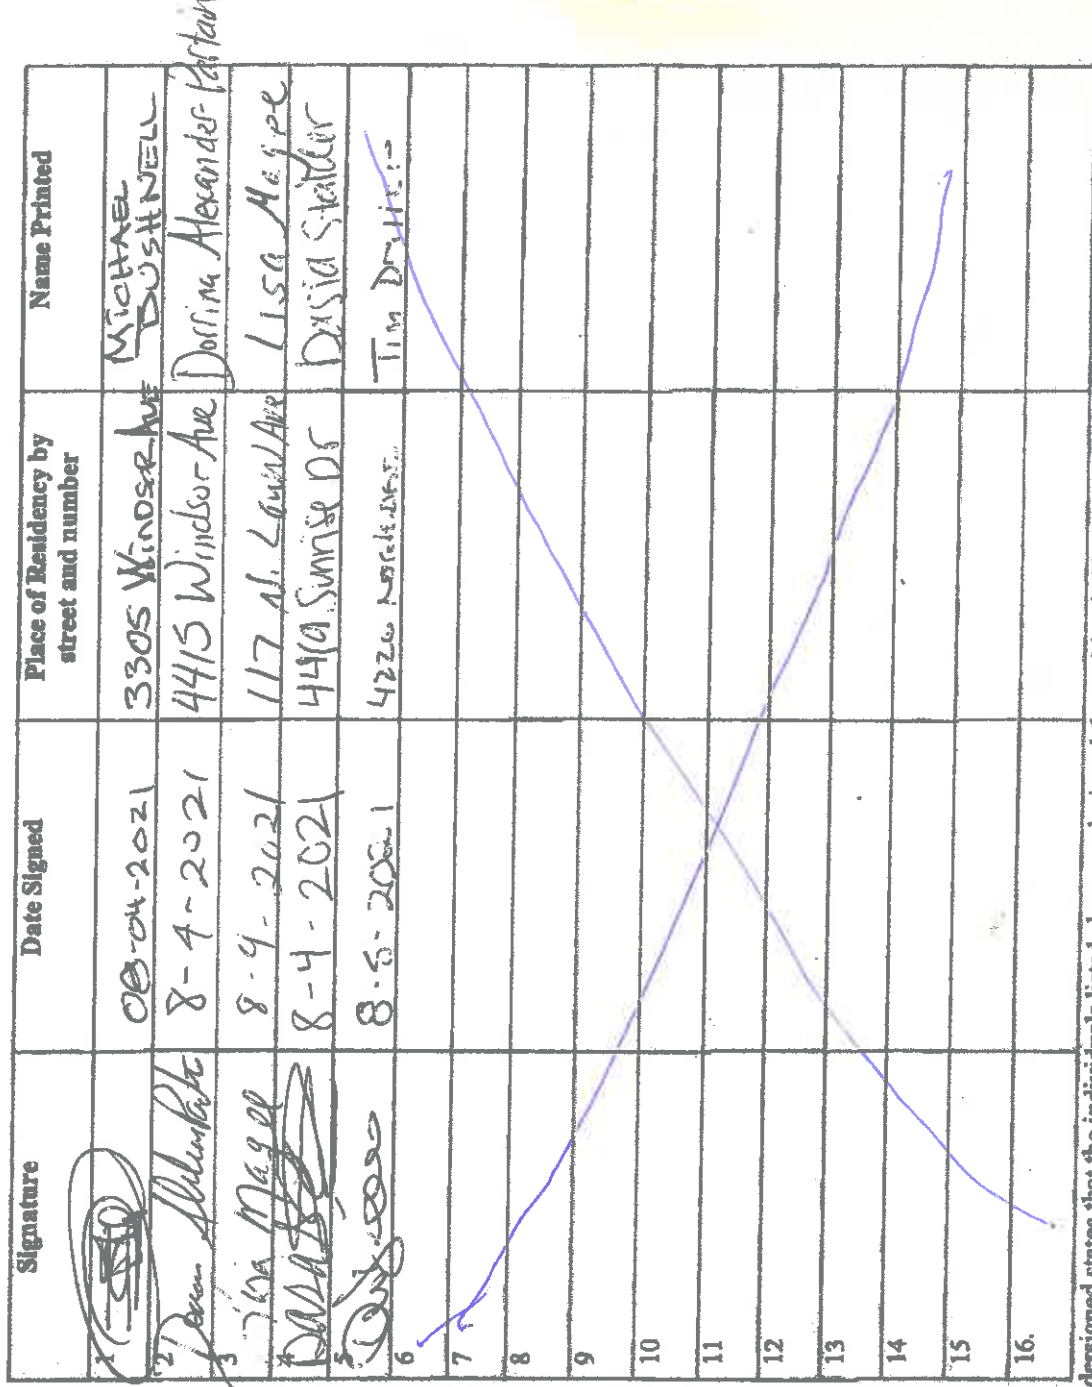 Signature Date Signed Place of Residency by street and number Name Printed
1 08-04-2021 3305 WINDSOR AVE MICHAEL DUSHNELL
2 8-4-2021 4415 Windsor Ave Dorrina Alexander-Partain
3 Lisa Magee 8-4-2021 117 N. Lawn Ave Lisa Magee
4 8-4-2021 4419 Sunrise Dr Dasia Statler
5 8-5-2021 4226 Tim
6
7
8
9
10
11
12
13
14
15
16.
signed states that the individuals listed